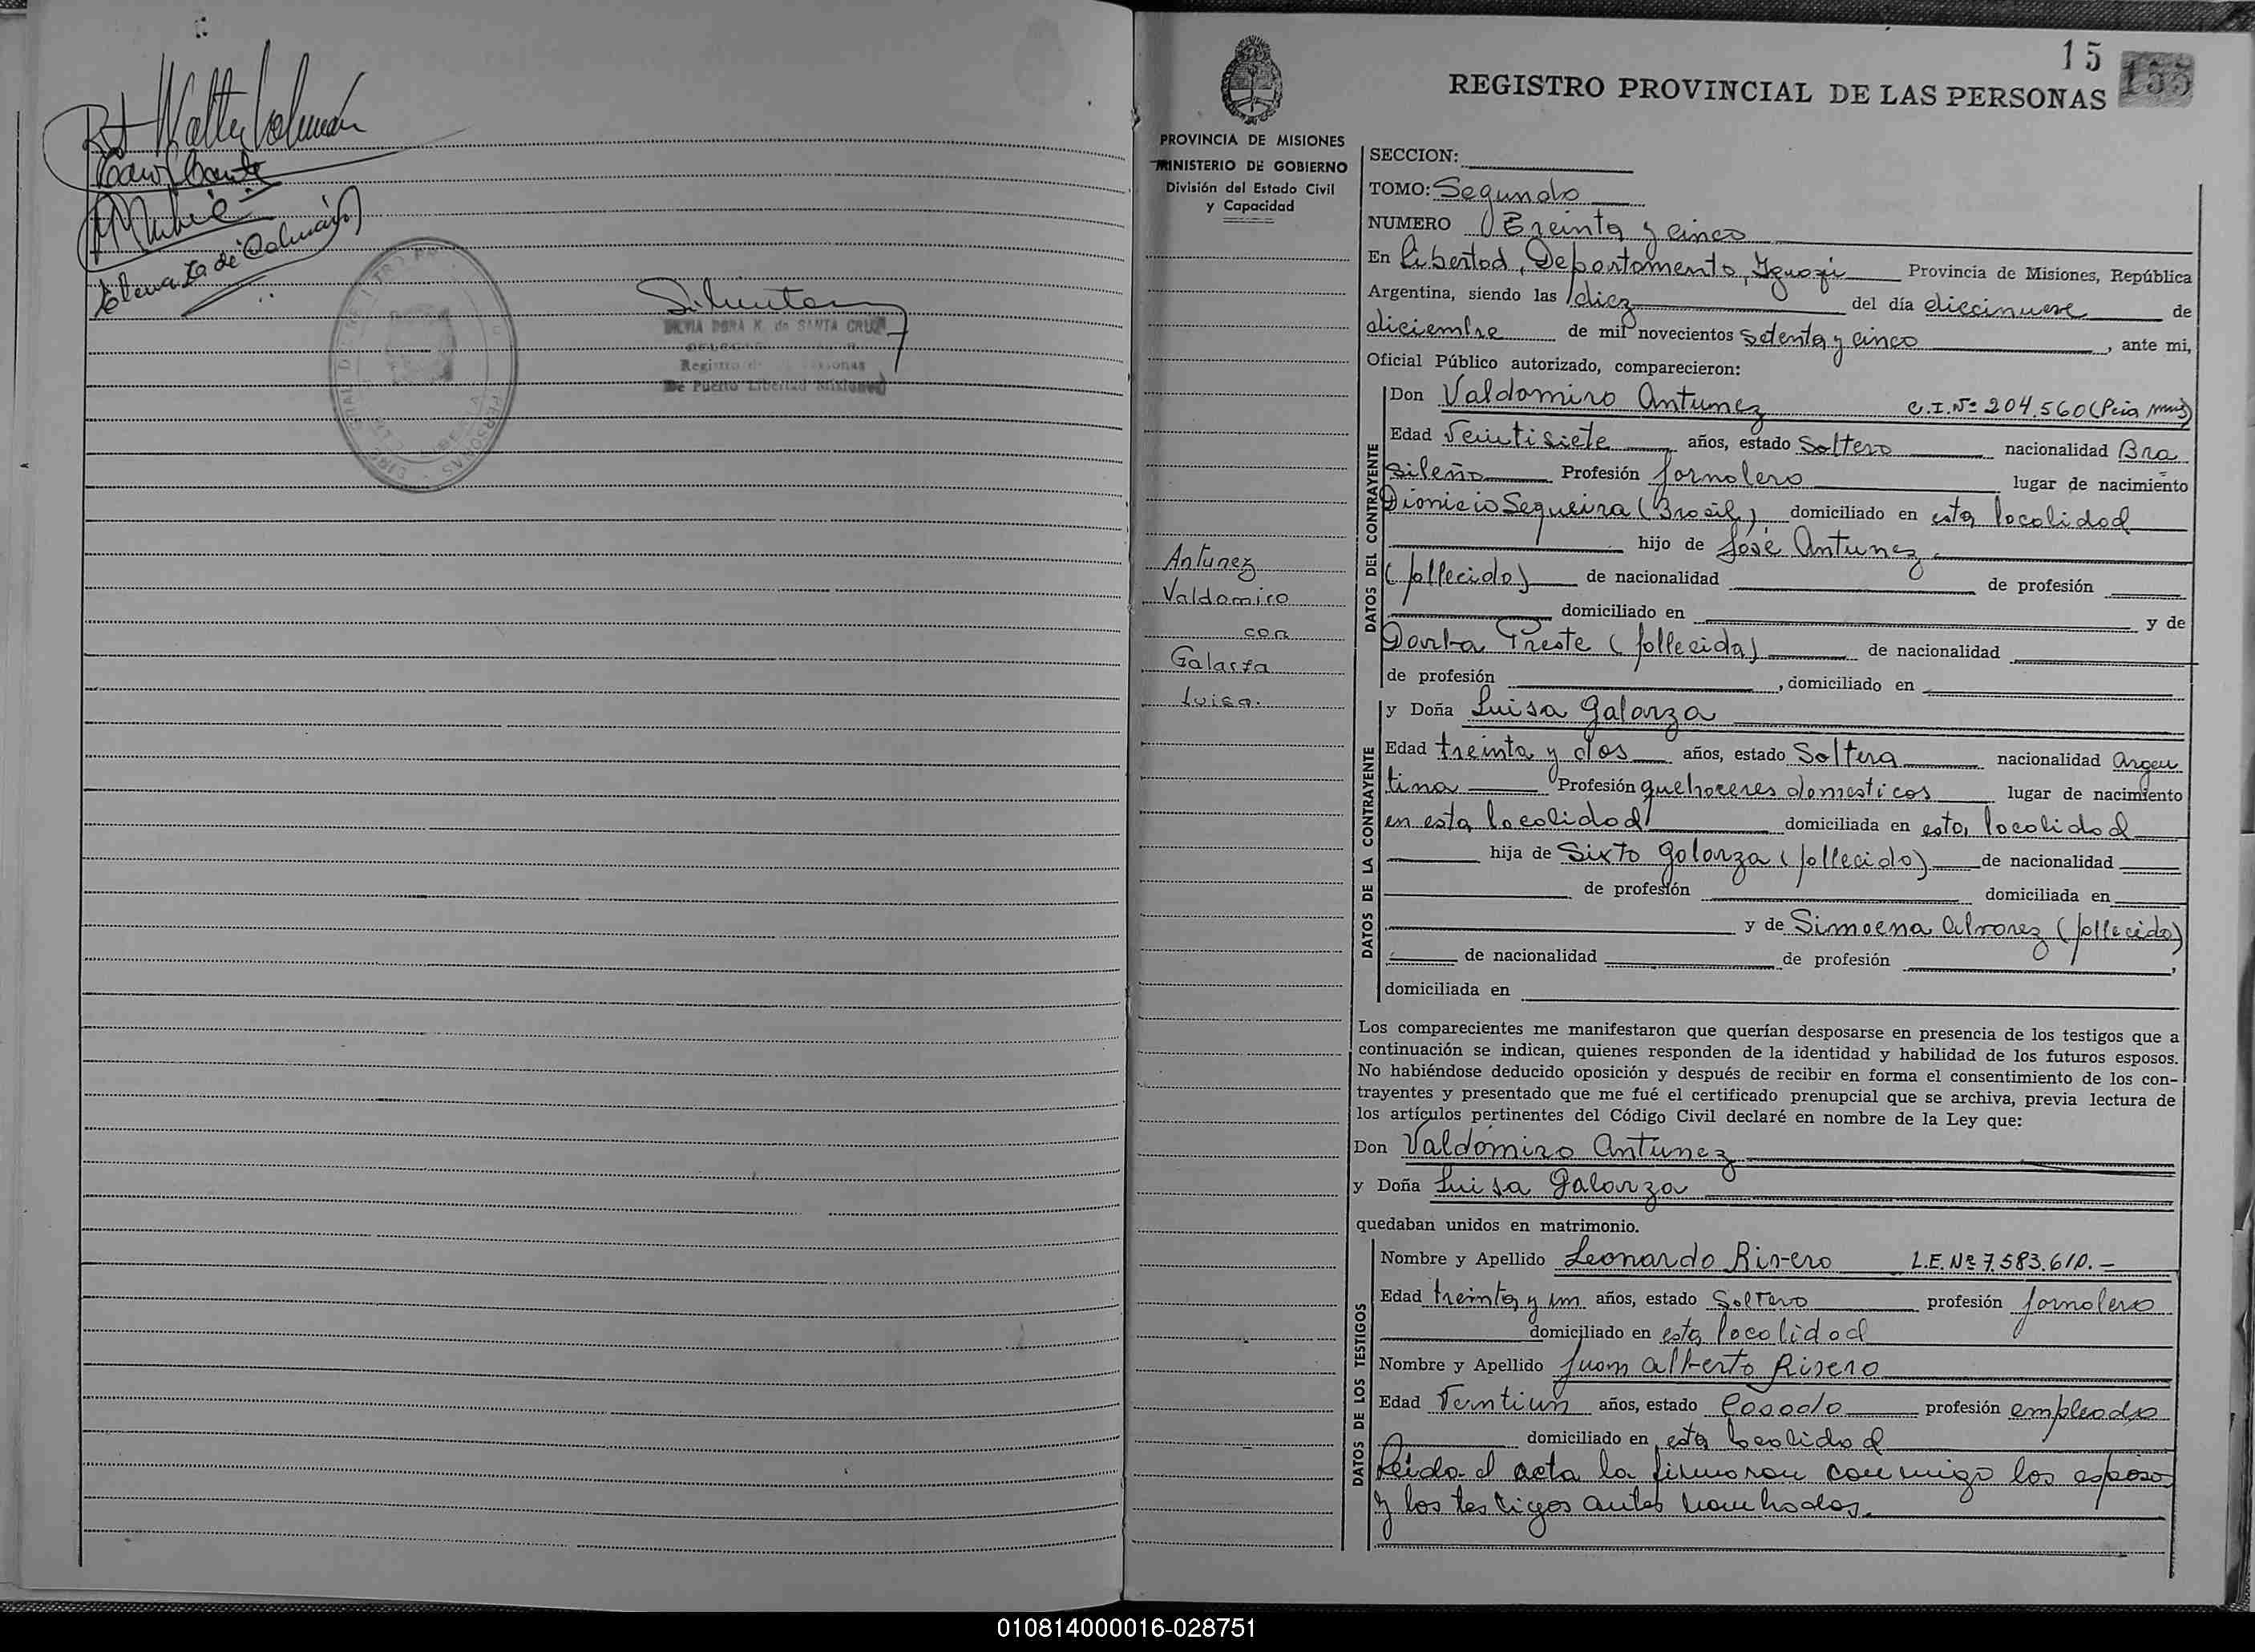 Walter Colmán
Elena Z. de Colmán
SILVIA DORA K. de SANTA CRUZ
Registro de las Personas
De Puerto Libertad Misiones
15
155
REGISTRO PROVINCIAL DE LAS PERSONAS
PROVINCIA DE MISIONES
MINISTERIO DE GOBIERNO
División del Estado Civil
y Capacidad
Antunez
Valdomiro
con
Galarza
Luisa.
SECCION:
TOMO: Segundo
NUMERO Treinta y cinco
En Libertad, Departamento, Iguazú Provincia de Misiones, República
Argentina, siendo las diez del día diecinueve de
diciembre de mil novecientos setenta y cinco, ante mi,
Oficial Público autorizado, comparecieron:
DATOS DEL CONTRAYENTE
Don Valdomiro Antunez C.I. Nº 204.560 (Pcia Mnes)
Edad Veintisiete años, estado Soltero nacionalidad Bra
sileño Profesión Jornalero lugar de nacimiento
Dionicio Sequeira (Brasil) domiciliado en esta localidad
hijo de José Antunez
(fallecido) de nacionalidad de profesión
domiciliado en y de
Preste (fallecida) de nacionalidad
de profesión , domiciliado en
DATOS DE LA CONTRAYENTE
y Doña Luisa Galarza
Edad treinta y dos años, estado Soltera nacionalidad Argen
tina Profesión quehaceres domesticos lugar de nacimiento
en esta localidad domiciliada en esta localidad
hija de Sixto Galarza (fallecido) de nacionalidad
de profesión domiciliada en
y de Simoena Alvarez (fallecida)
de nacionalidad de profesión ,
domiciliada en
Los comparecientes me manifestaron que querían desposarse en presencia de los testigos que a
continuación se indican, quienes responden de la identidad y habilidad de los futuros esposos.
No habiéndose deducido oposición y después de recibir en forma el consentimiento de los con-
trayentes y presentado que me fué el certificado prenupcial que se archiva, previa lectura de
los artículos pertinentes del Código Civil declaré en nombre de la Ley que:
Don Valdomiro Antunez
y Doña Luisa Galarza
quedaban unidos en matrimonio.
DATOS DE LOS TESTIGOS
Nombre y Apellido Leonardo Rivero L.E. Nº 7.583.610.-
Edad treinta y un años, estado Soltero profesión Jornalero
domiciliado en esta localidad
Nombre y Apellido Juan Alberto Rivero
Edad Veintiun años, estado Casado profesión empleado
domiciliado en esta localidad
Leida el acta la firmaron conmigo los esposos
y los testigos antes nombrados.
010814000016-028751